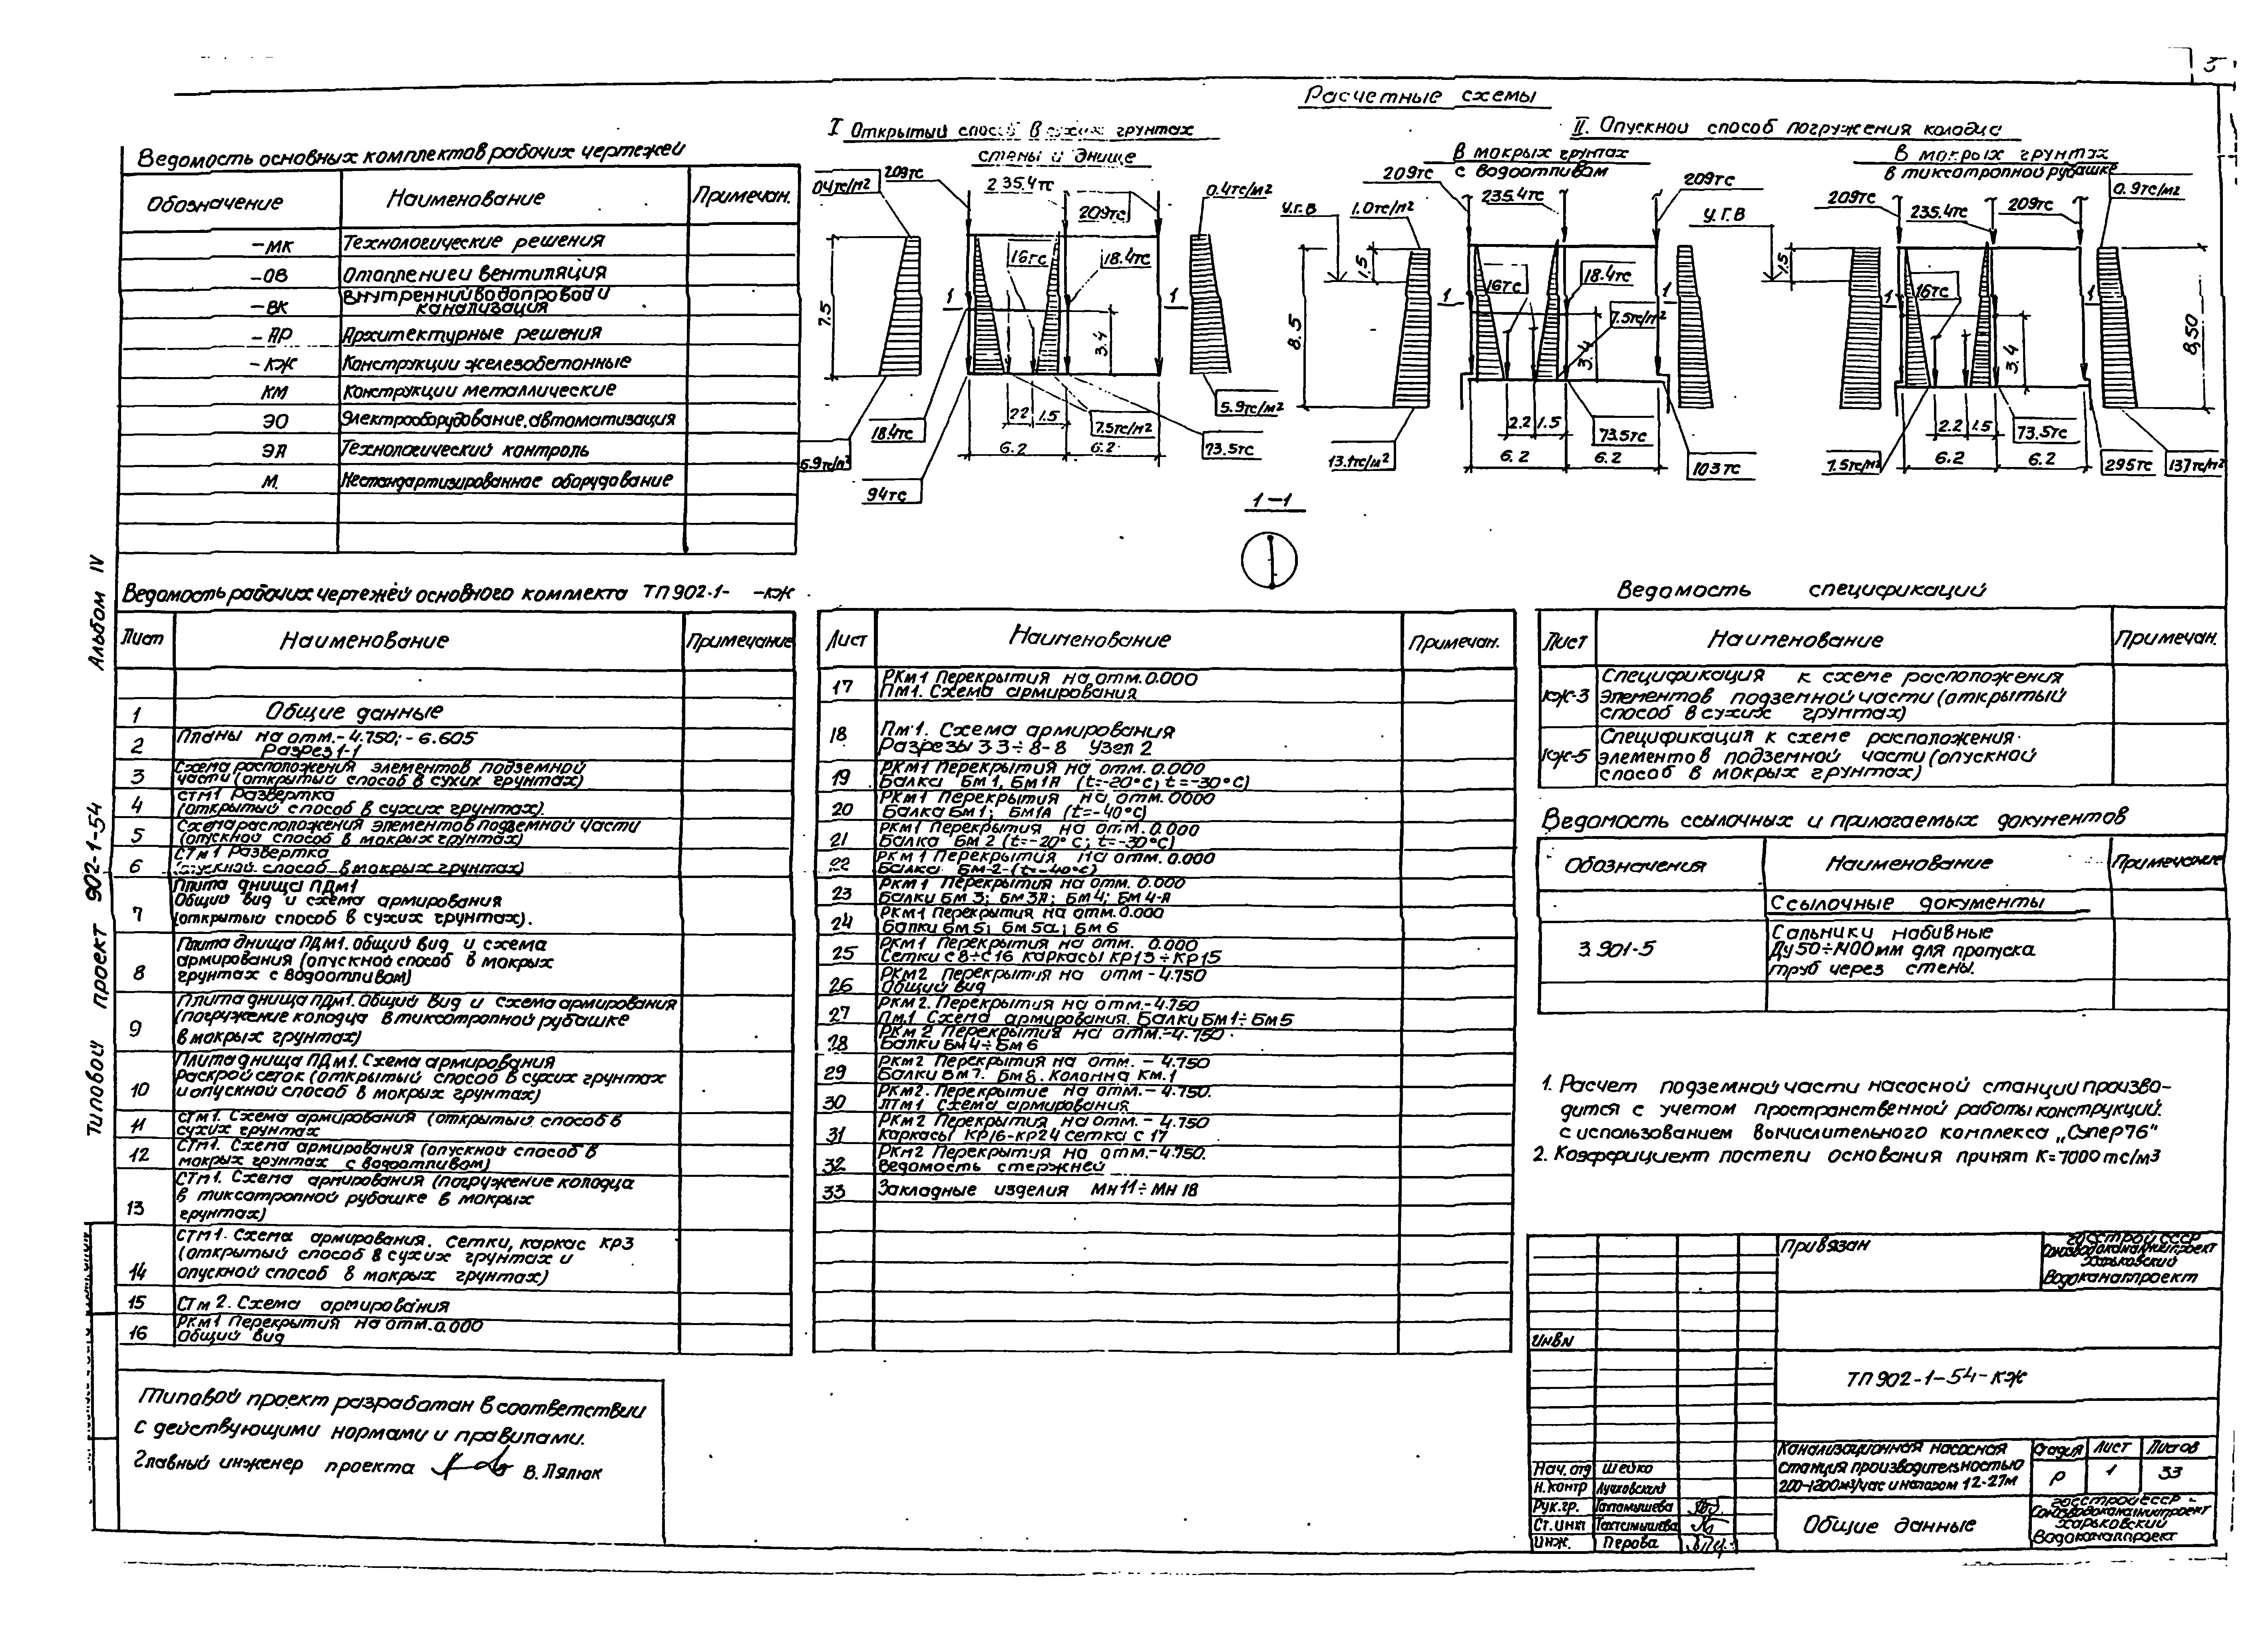 3
Расчетные схемы
I Открытый способ в сухих грунтах
стены и днище
II. Опускной способ погружения колодца
В мокрых грунтах
с водоотливом
В мокрых грунтах
в тиксотропной рубашке
04тс/м²
209тс
235.4тс
209тс
0.4тс/м²
7.5
16тс
18.4тс
1
1
3.4
22
1.5
6.2
6.2
18.4тс
5.9тс/м²
94тс
7.5тс/м²
73.5тс
5.9тс/м²
У.Г.В
1.0тс/м²
209тс
235.4тс
209тс
8.5
1.5
16тс
18.4тс
7.5тс/м²
1
1
3.4
2.2
1.5
6.2
6.2
13.1тс/м²
73.5тс
103тс
У.Г.В
209тс
235.4тс
209тс
0.9тс/м²
1.5
16тс
1
1
3.4
8,50
2.2
1.5
6.2
6.2
7.5тс/м²
73.5тс
295тс
137тс/м²
1-1
Ведомость основных комплектов рабочих чертежей
Обозначение Наименование Примечан.
-МК Технологические решения
-ОВ Отопление и вентиляция
-ВК Внутренний водопровод и
канализация
-АР Архитектурные решения
-КЖ Конструкции железобетонные
КМ Конструкции металлические
ЭО Электрооборудование, автоматизация
ЭА Технологический контроль
М. Нестандартизированное оборудование
Альбом IV
Типовой проект 902-1-54
Ведомость рабочих чертежей основного комплекта ТП 902-1- -КЖ
Лист Наименование Примечание
1 Общие данные
2 Планы на отм.-4.750; -6.605
Разрез 1-1
3 Схема расположения элементов подземной
части (открытый способ в сухих грунтах)
4 СТм1 Развертка
(открытый способ в сухих грунтах).
5 Схема расположения элементов подземной части
(опускной способ в мокрых грунтах)
6 СТм1 Развертка
(опускной способ в мокрых грунтах)
7 Плита днища ПДм1
Общий вид и схема армирования
(открытый способ в сухих грунтах).
8 Плита днища ПДм1. Общий вид и схема
армирования (опускной способ в мокрых
грунтах с водоотливом)
9 Плита днища ПДм1. Общий вид и схема армирования
(погружение колодца в тиксотропной рубашке
в мокрых грунтах)
10 Плита днища ПДм1. Схема армирования
Раскрой сеток (открытый способ в сухих грунтах
и опускной способ в мокрых грунтах)
11 СТм1. Схема армирования (открытый способ в
сухих грунтах
12 СТм1. Схема армирования (опускной способ в
мокрых грунтах с водоотливом)
13 СТм1. Схема армирования (погружение колодца
в тиксотропной рубашке в мокрых
грунтах)
14 СТм1. Схема армирования. Сетки, каркас КР3
(открытый способ в сухих грунтах и
опускной способ в мокрых грунтах)
15 СТм 2. Схема армирования
16 РКм1 Перекрытия на отм.0.000
Общий вид
Лист Наименование Примечан.
17 РКм1 Перекрытия на отм.0.000
Пм1. Схема армирования
18 Пм1. Схема армирования
Разрезы 3-3÷8-8 Узел 2
19 РКм1 Перекрытия на отм. 0.000
Балка Бм1, Бм1А (t=-20°С; t=-30°С)
20 РКм1 Перекрытия на отм. 0000
Балка Бм1; Бм1А (t=-40°С)
21 РКм1 Перекрытия на отм. 0.000
Балка Бм 2 (t=-20°С; t=-30°С)
22 РКм 1 Перекрытия на отм. 0.000
Балка Бм-2-(t=-40°С)
23 РКм1 Перекрытия на отм. 0.000
Балки Бм 3; Бм3А; Бм4; Бм 4-А
24 РКм1 Перекрытия на отм.0.000
Балки Бм5; Бм5а; Бм 6
25 РКм1 Перекрытия на отм. 0.000
Сетки С8÷С16 каркасы КР13÷КР15
26 РКм2 Перекрытия на отм -4.750
Общий вид
27 РКм2. Перекрытия на отм.-4.750
Пм.1 Схема армирования. Балки Бм1÷Бм5
28 РКм 2 Перекрытия на отм.-4.750
Балки Бм4÷Бм6
29 РКм2 Перекрытия на отм. - 4.750
Балки Бм7. Бм8. Колонна Км.1
30 РКм2. Перекрытие на отм. - 4.750.
ЛТм1 Схема армирования
31 РКм2 Перекрытия на отм. - 4.750
Каркасы КР16-КР24 сетка С 17
32 РКм2 Перекрытия на отм.-4.750.
Ведомость стержней
33 Закладные изделия Мн11÷Мн 18
Ведомость спецификаций
Лист Наименование Примечан.
КЖ-3 Спецификация к схеме расположения
элементов подземной части (открытый
способ в сухих грунтах)
КЖ-5 Спецификация к схеме расположения
элементов подземной части (опускной
способ в мокрых грунтах)
Ведомость ссылочных и прилагаемых документов
Обозначения Наименование Примечание
Ссылочные документы
3.901-5 Сальники набивные
Ду50÷1400мм для пропуска
труб через стены.
1. Расчет подземной части насосной станции произво-
дится с учетом пространственной работы конструкций.
с использованием вычислительного комплекса „Супер76"
2. Коэффициент постели основания принят К=7000 тс/м3
Типовой проект разработан в соответствии
с действующими нормами и правилами.
Главный инженер проекта В. Лялюк
Привязан
Госстрой СССР
Союзводоканалниипроект
Харьковский
Водоканалпроект
Инв№
ТП 902-1-54-КЖ
Нач.отд Шейко
Н.контр Лучковский
Рук.гр.
Ст.инж
Инж. Перова
Канализационная насосная
станция производительностью
200-1200м3/час и напором 12-27м
Стадия Лист Листов
Р 1 33
Общие данные
Госстрой СССР
Союзводоканалниипроект
Харьковский
Водоканалпроект